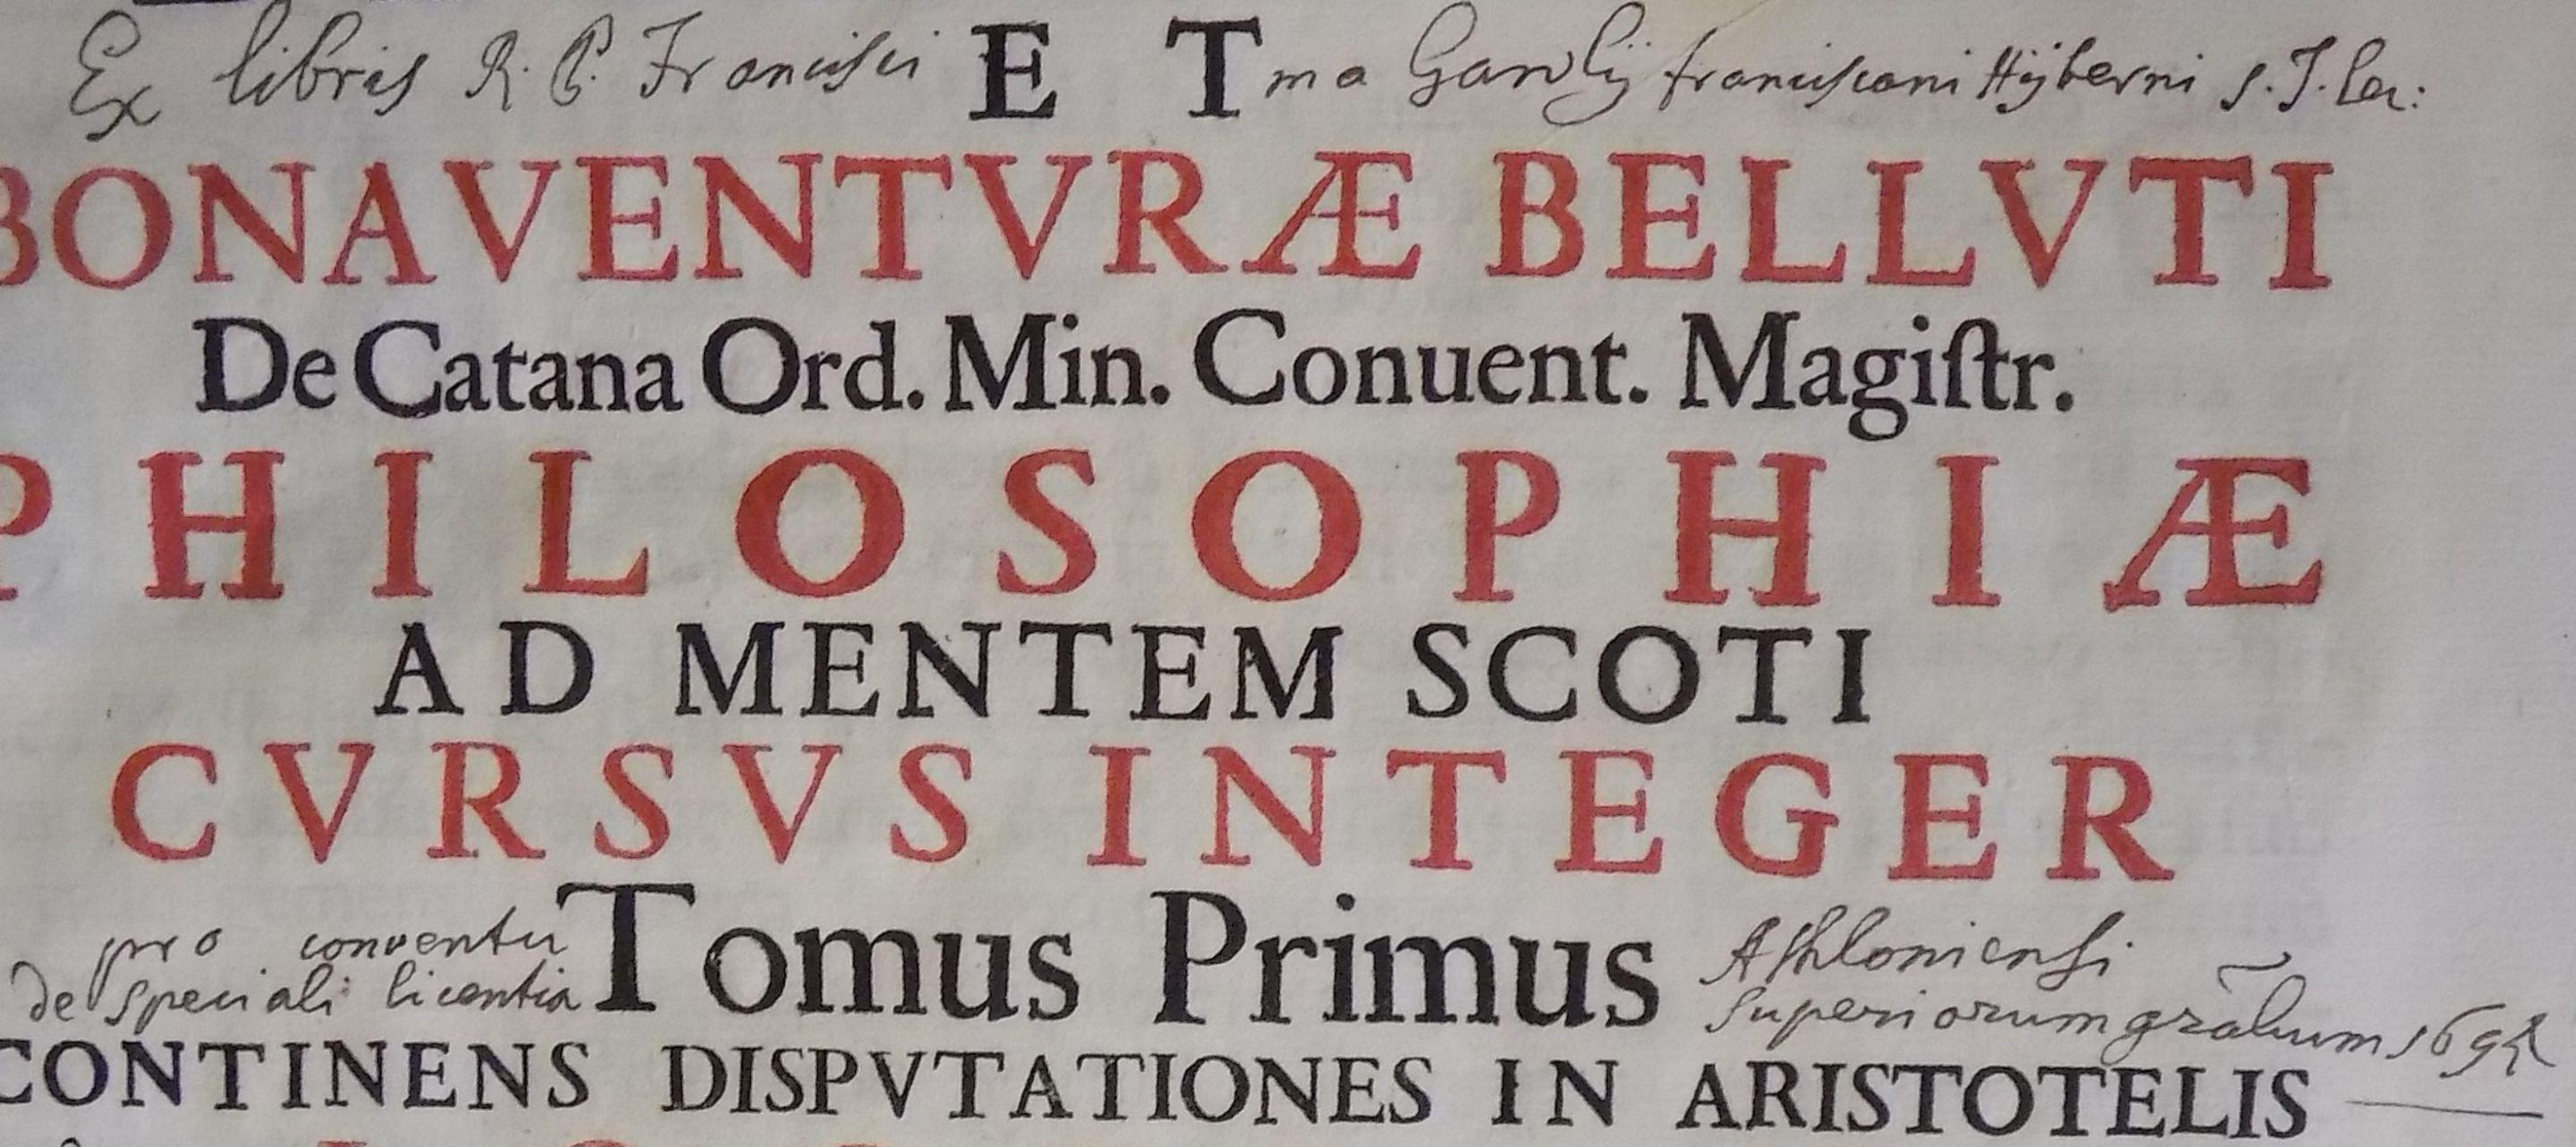 Ex libris R. P. Francisci E T ma Ganlij franciscani Hÿberni S. T. Lec:
BONAVENTVRÆ BELLVTI
De Catana Ord. Min. Conuent. Magiſtr.
PHILOSOPHIÆ
AD MENTEM SCOTI
CVRSVS INTEGER
pro conventu Tomus Primus Athloniensi
de speciali licentia superiorum grãlium
CONTINENS DISPVTATIONES IN ARISTOTELIS